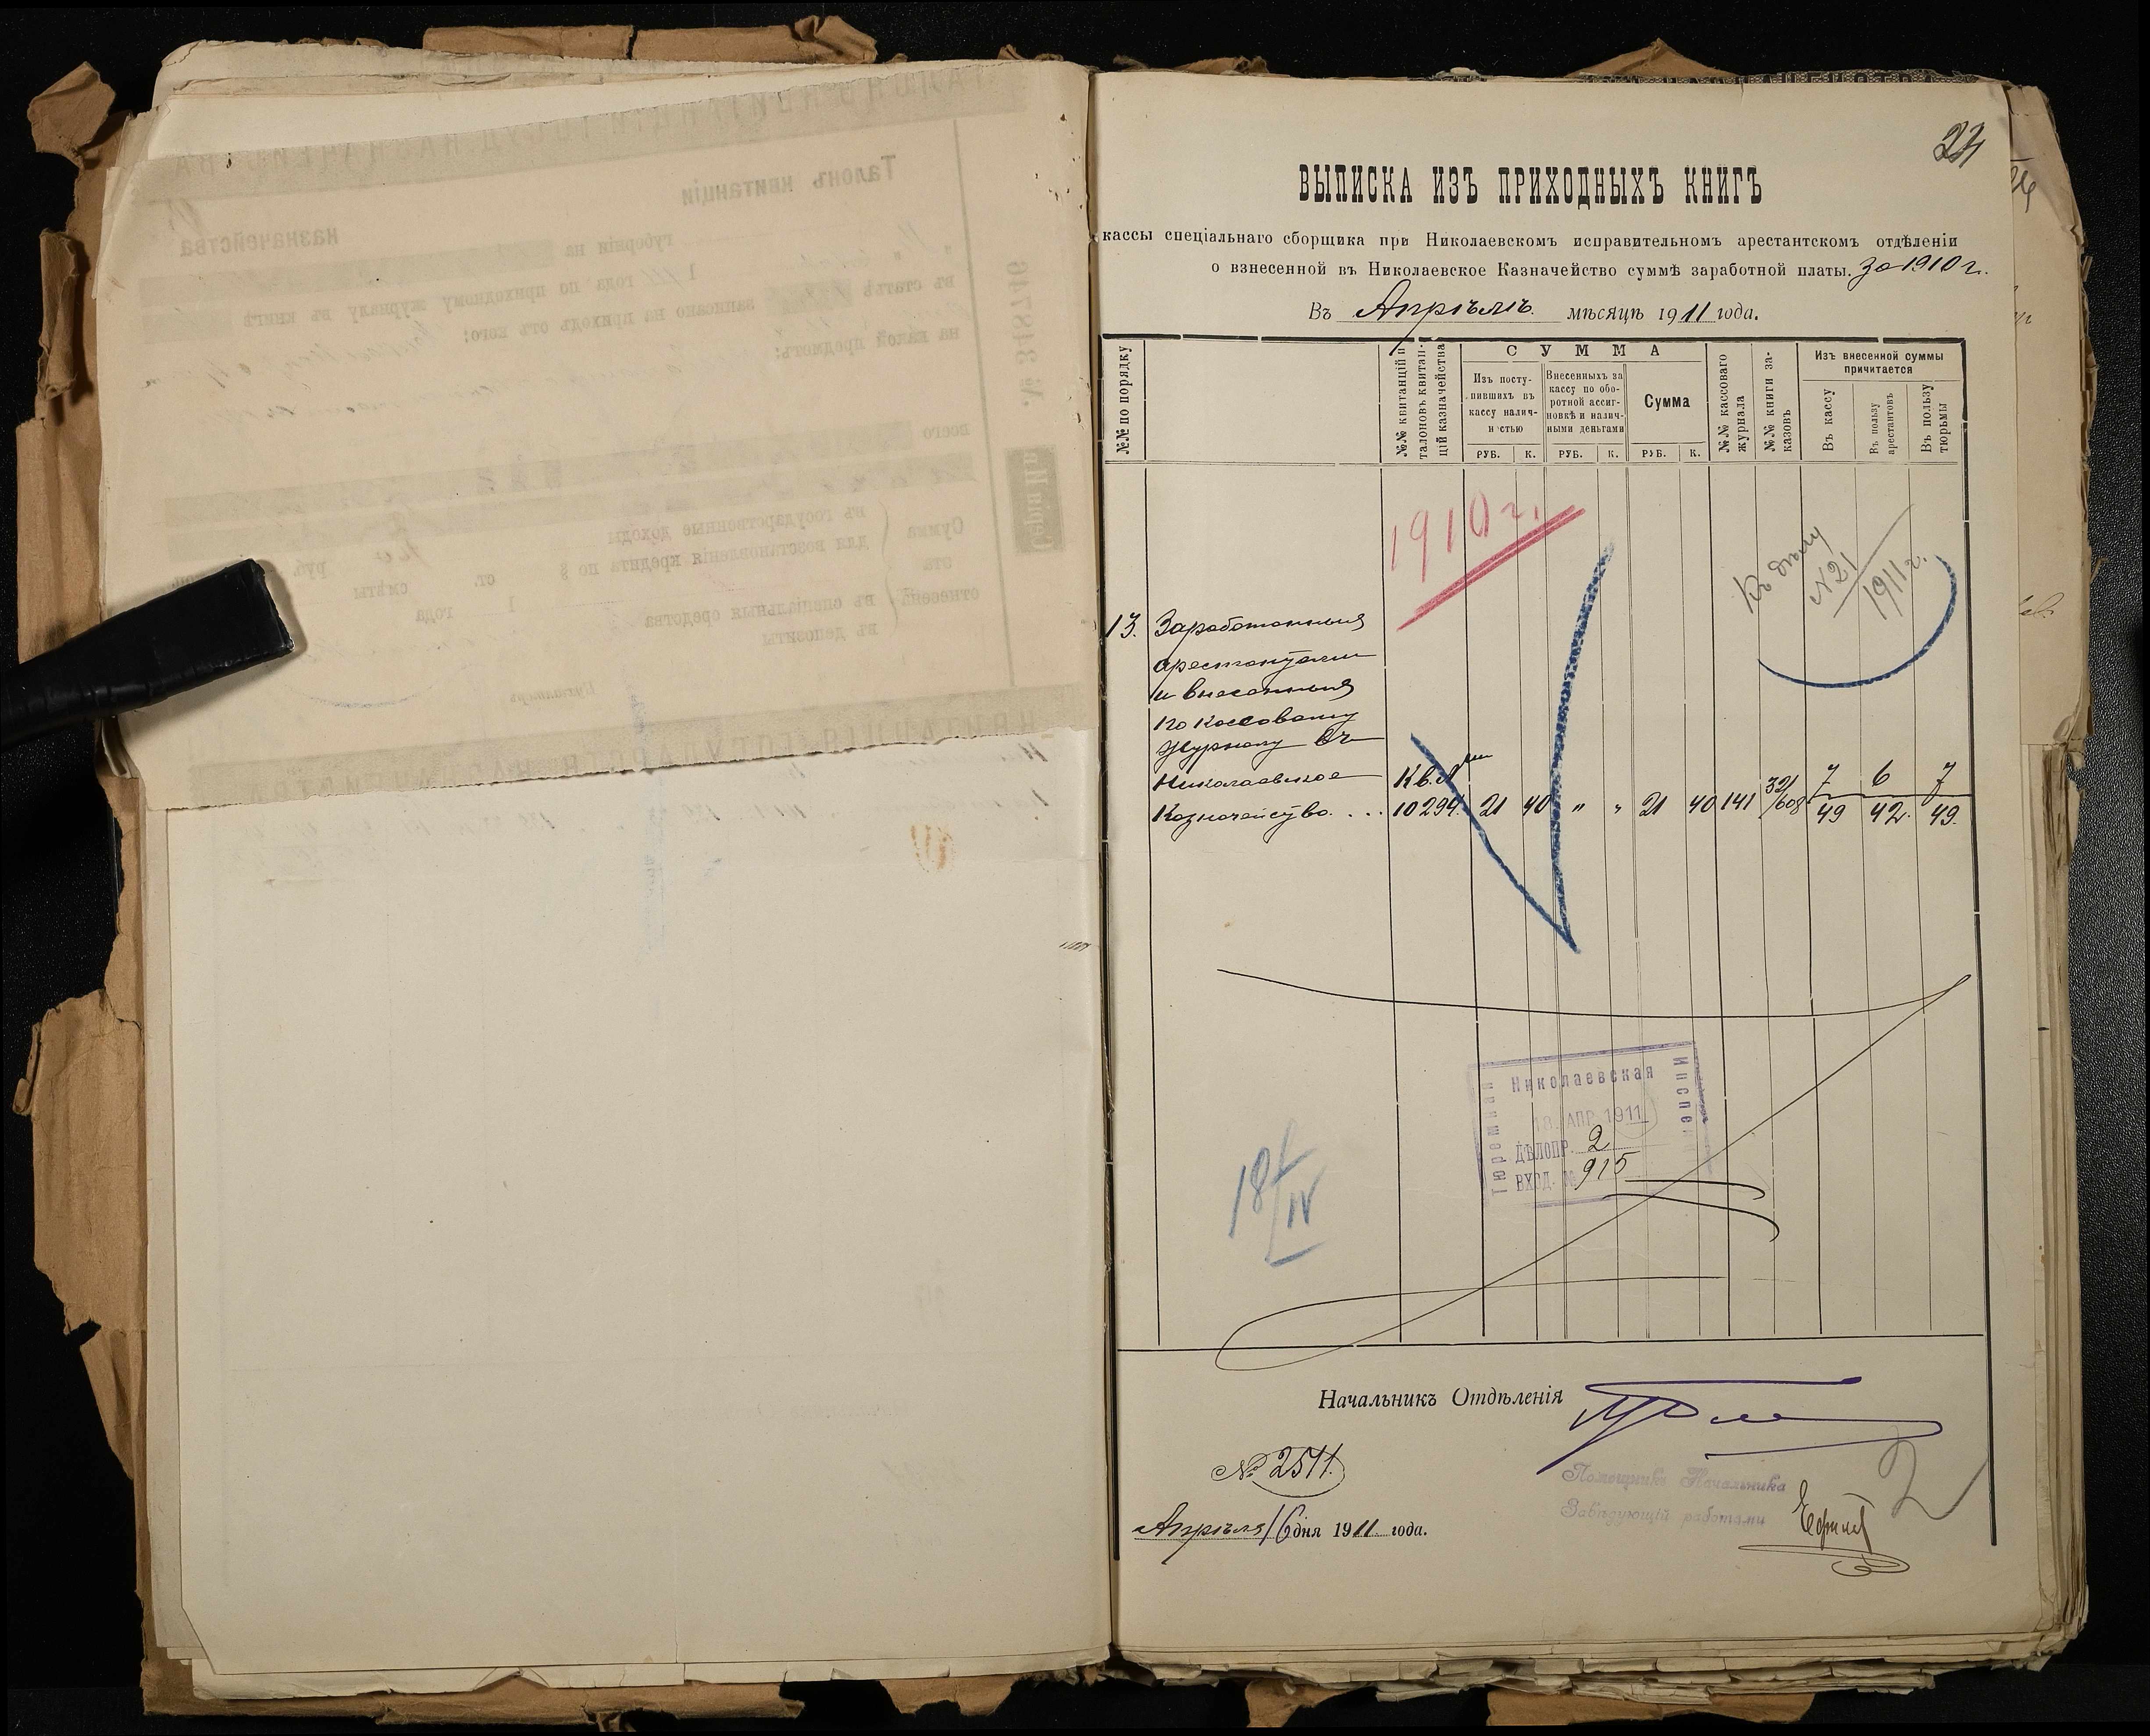 24
ВЫПИСКА ИЗЪ ПРИХОДНЫХЪ КНИГЪ
кассы спеціальнаго сборщика при Николаевскомъ исправительномъ арестантскомъ отдѣленіи
о взнесенной въ Николаевское Казначейство суммѣ заработной платы. за 1910 г.
Въ Апрѣлѣ мѣсяцѣ 1911 года.
№№ по порядку
№№ квитанцій и талоновъ квитанцій казначейства
СУММА
Изъ поступившихъ въ кассу наличностью
Внесенныхъ за кассу по оборотной ассигновкѣ и наличными деньгами
Сумма
РУБ. К. РУБ. К. РУБ. К.
№№ кассоваго журнала
№№ книги заказовъ
Изъ внесенной суммы причитается
Въ кассу
Въ пользу арестантовъ
Въ пользу тюрьмы
1910 г.
Къ дѣлу
№ 21
1911 г.
13. Заработанныя
арестантами
и внесенныя
по кассовому
журналу въ
Николаевское Кв. 7 6 7
Казначейство... 10294. 21 40 " " 21 40 141 32/608 49 42. 49.
Николаевская
Тюремная
Инспекція
18 АПР. 1911
ДѢЛОПР. 2
ВХОД. № 915
18/IV
Начальникъ Отдѣленія
№ 2511.
Помощникъ Начальника
Завѣдующій работами
Апрѣля 16 дня 1911 года.
Талонъ квитанціи
казначейства
губерніи на
1911 года по приходному журналу въ книгѣ
въ статьѣ
записано на приходъ отъ кого:
на какой предметъ:
№ 348746
всего
Серія II
Сумма
эта
отнесена
въ государственные доходы
для возстановленія кредита по §
ст.
смѣты
1
года
въ спеціальныя средства
въ депозиты
руб.
коп.
Бухгалтеръ